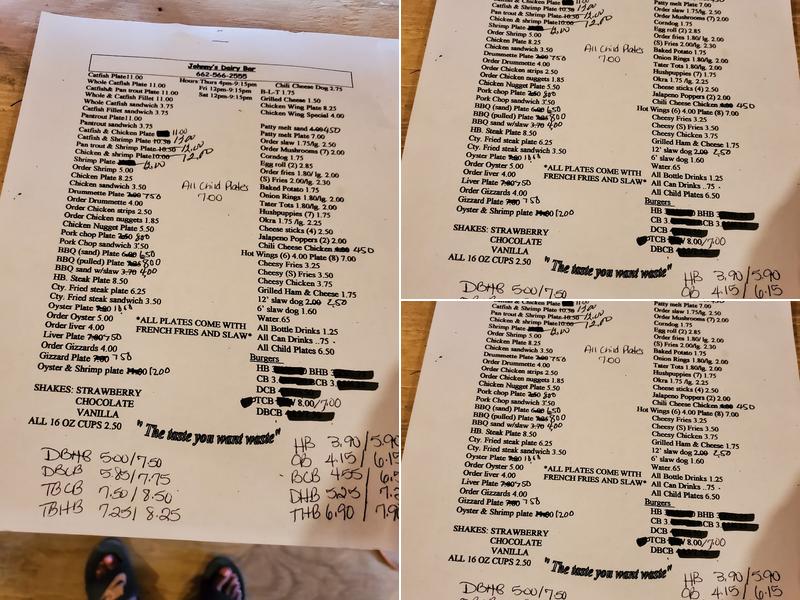 Johnny's Dairy Bar
662-566-2555
Hours Thurs 4pm-9:15pm
Fri 12pm-9:15pm
Sat 12pm-9:15pm
Catfish Plate 11.00
Whole Catfish Plate 11.00
Catfish& Pan trout Plate 11.00
Whole & Catfish Plate 11.00
Whole Catfish sandwich 3.75
Catfish Fillet sandwich 3.75
Pantrout Plate 11.00
Pantrout sandwich 3.75
Catfish & Chicken Plate 11.00
Catfish & Shrimp Plate 12.00
Pan trout & Shrimp Plate 12.00
Chicken & shrimp Plate 12.00
Shrimp Plate
Order Shrimp 5.00
Chicken Plate 8.25
Chicken sandwich 3.50
Drummette Plate 7.50
Order Drummette 4.00
Order Chicken strips 2.50
Order Chicken nuggets 1.85
Chicken Nugget Plate 5.50
Pork chop Plate 8.00
Pork Chop sandwich 3.50
BBQ (sand) Plate 6.50
BBQ (pulled) Plate 8.00
BBQ sand w/slaw 3.70 4.00
HB. Steak Plate 8.50
Cty. Fried steak plate 6.25
Cty. Fried steak sandwich 3.50
Oyster Plate
Order Oyster 5.00
Order liver 4.00
Liver Plate 7.50
Order Gizzards 4.00
Gizzard Plate 7.50
Oyster & Shrimp plate 12.00
All Child Plates
7.00
Chili Cheese Dog 2.75
B-L-T 1.75
Grilled Cheese 1.50
Chicken Wing Special 4.00
Patty melt sand 4.50
Patty melt Plate 7.00
Order slaw 1.75/lg. 2.50
Order Mushrooms (7) 2.00
Corndog 1.75
Egg roll (2) 2.85
Order fries 1.80/ lg. 2.00
(S) Fries 2.00/lg. 2.30
Baked Potato 1.75
Onion Rings 1.80/lg. 2.00
Tater Tots 1.80/lg. 2.00
Hushpuppies (7) 1.75
Okra 1.75 /lg. 2.25
Cheese sticks (4) 2.50
Jalapeno Poppers (2) 2.00
Chili Cheese Chicken 4.50
Hot Wings (6) 4.00 Plate (8) 7.00
Cheesy Fries 3.25
Cheesy (S) Fries 3.50
Cheesy Chicken 3.75
Grilled Ham & Cheese 1.75
12' slaw dog 2.00 2.50
6' slaw dog 1.60
Water.65
All Bottle Drinks 1.25
All Can Drinks ..75
All Child Plates 6.50
*ALL PLATES COME WITH
FRENCH FRIES AND SLAW*
Burgers
HB 3 BHB 3
CB 3. CB 3.
DCB
TCB 8.00/7.00
DBCB
SHAKES: STRAWBERRY
CHOCOLATE
VANILLA
ALL 16 OZ CUPS 2.50
"The taste you want waste"
DBHB 5.00/7.50
DBCB 5.85/7.75
TBCB 7.50/8.50
TBHB 7.25/8.25
HB 3.90/5.90
CB 4.15/6.15
BCB 4.55
DHB 5.25
THB 6.90